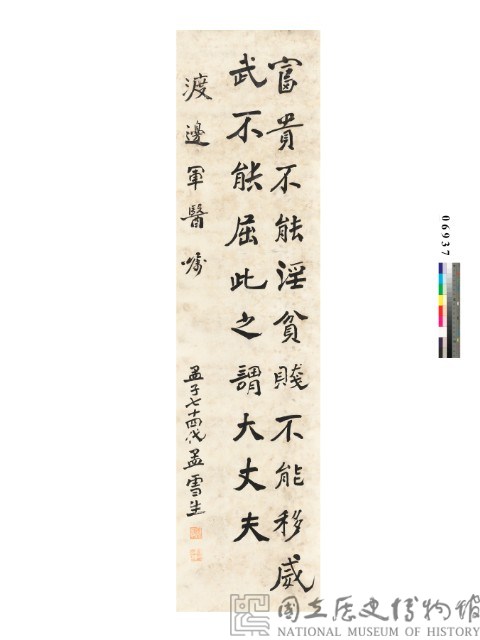 富貴不能淫貧賤不能移威
武不能屈此之謂大丈夫
渡邊軍醫囑
孟子七十四代孟雪生
06937
國立歷史博物館
NATIONAL MUSEUM OF HISTORY